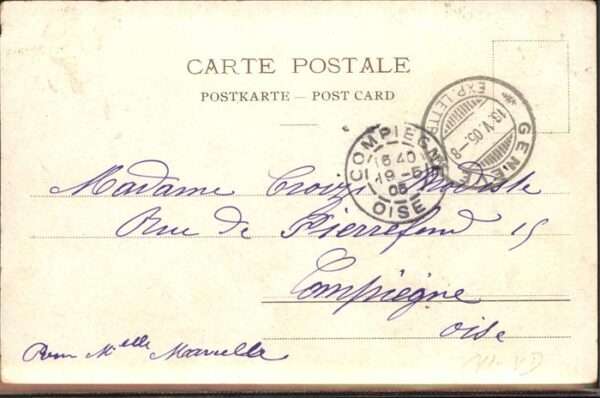 CARTE POSTALE
POSTKARTE — POST CARD
GENÈVE
EXP. LETTR.
COMPIEGNE
16 40
19 -5
05
OISE
Madame Modiste
Rue de Pierrefond 15
Compiègne
Oise
Pour Melle